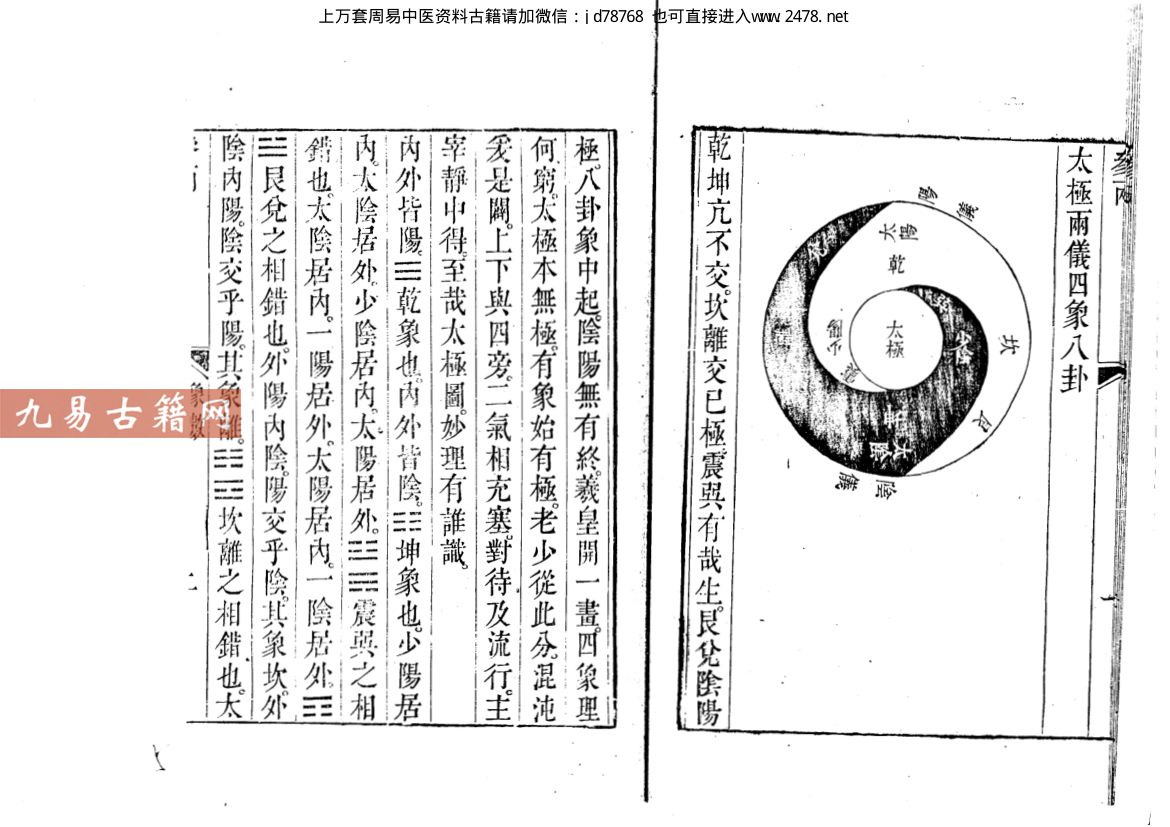 上万套周易中医资料古籍请加微信：jd78768 也可直接进入www.2478.net
太極兩儀四象八卦
陽儀
太陽
乾
太極
坎
艮
太陰
陰儀
乾坤亢不交。坎離交已極。震巽有哉生。艮兌陰陽
極。八卦象中起。陰陽無有終。羲皇開一畫。四象理
何窮。太極本無極。有象始有極。老少從此分。混沌
爰是闢。上下與四旁。二氣相充塞。對待及流行。主
宰靜中得。至哉太極圖。妙理有誰識。
內外皆陽。☰乾象也。內外皆陰。☷坤象也。少陽居
內。太陰居外。少陰居內。太陽居外。☳☴震巽之相
錯也。太陰居內。一陽居外。太陽居內。一陰居外。☶
☱艮兌之相錯也。外陽內陰。陽交乎陰。其象坎。外
陰內陽。陰交乎陽。其象離。☵☲坎離之相錯也。太
象數
九易古籍网